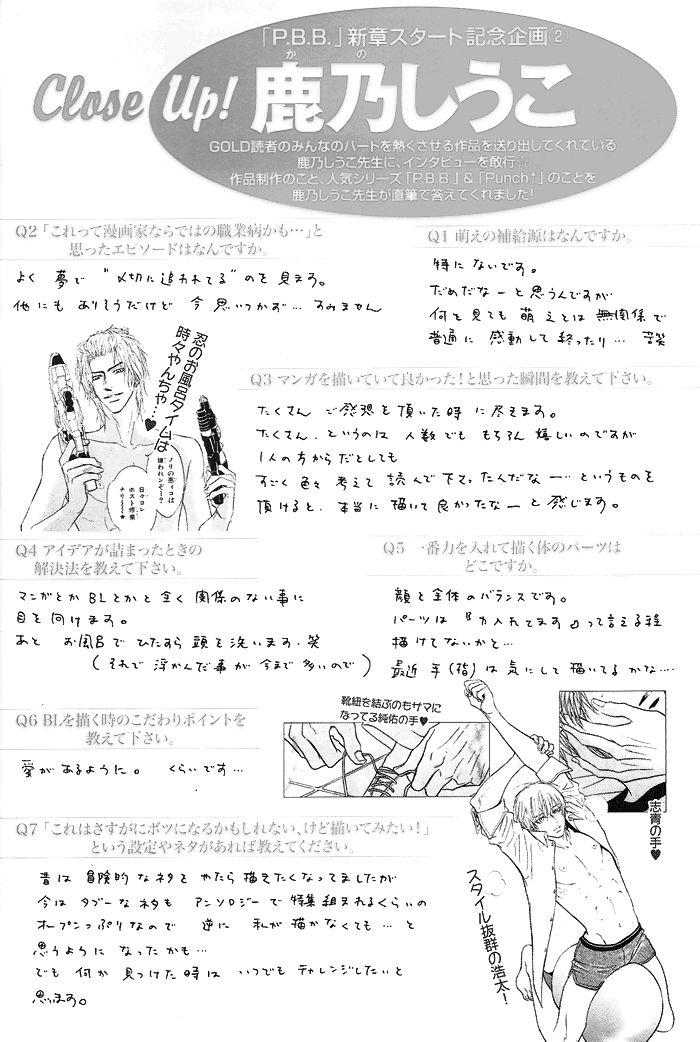 「P.B.B.」新章スタート記念企画②
Close Up!
かの
鹿乃しうこ
GOLD読者のみんなのハートを熱くさせる作品を送り出してくれている
鹿乃しうこ先生に、インタビューを敢行☆
作品制作のこと、人気シリーズ「P.B.B.」&「Punch↑」のことを
鹿乃しうこ先生が直筆で答えてくれました!
Q1 萌えの補給源はなんですか。
特にないです。
だめだなーと思うんですが
何を見ても萌えとは無関係で
普通に感動して終ったり… 苦笑
Q2「これって漫画家ならではの職業病かも…」と
思ったエピソードはなんですか。
よく夢で“〆切に追われてる”のを見ます。
他にもありそうだけど今思いつかず…すみません
忍のお風呂タイムは
時々やんちゃ…♥
ノリの悪ィコは
嫌われンぞー?
日々コレ
ホスト修業
ナリ~~★
Q3 マンガを描いていて良かった!と思った瞬間を教えて下さい。
たくさんご感想を頂いた時に尽きます。
たくさん、というのは人数でももちろん嬉しいのですが
1人の方からだとしても
すごく色々考えて読んで下さったんだなー…というものを
頂けると、本当に描いて良かったなーと感じます。
Q4 アイデアが詰まったときの
解決法を教えて下さい。
マンガとかBLとかと全く関係のない事に
目を向けます。
あと お風呂でひたすら頭を洗います。笑
(それで浮かんだ事が今まで多いので)
Q5 一番力を入れて描く体のパーツは
どこですか。
顔と全体のバランスです。
パーツは『力入れてます』って言える程
描けてないかと…
最近手(指)は気にして描いてるかな…
靴紐を結ぶのもサマに
なってる純佑の手♥
志青の手♥
Q6 BLを描く時のこだわりポイントを
教えて下さい。
愛があるように。 くらいです…
Q7「これはさすがにボツになるかもしれない、けど描いてみたい!」
という設定やネタがあれば教えてください。
昔は冒険的なネタをやたら描きたくなってましたが
今はタブーなネタもアンソロジーで特集組まれるくらいの
オープンっぷりなので 逆に私が描かなくても…と
思うようになったかも…
でも何か見つけた時はいつでもチャレンジしたいと
思います。
スタイル抜群の浩太!